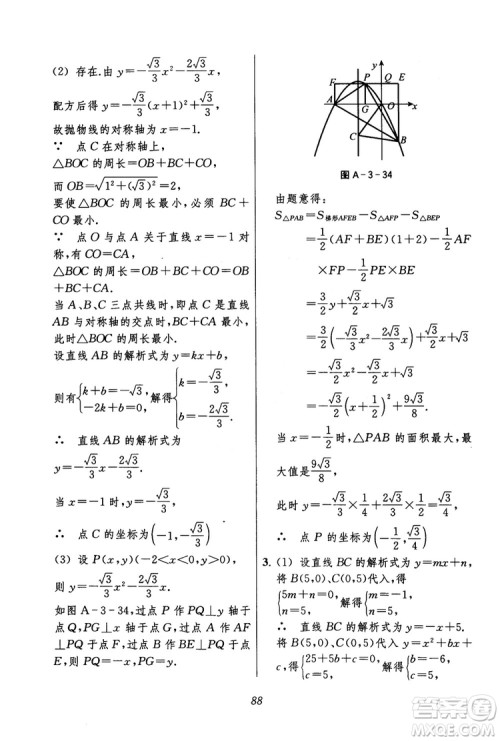 (2) 存在.由 y=-√3/3 x²-2√3/3 x,
配方后得 y=-√3/3 (x+1)²+√3/3.
故抛物线的对称轴为 x=-1.
∵ 点 C 在对称轴 x=-1 上,
△BOC 的周长=OB+BC+CO,
而 OB=√(1²+(√3)²)=2,
要使△BOC 的周长最小,必须 BC
+CO 最小.
∵ 点 O 与点 A 关于直线 x=-1 对
称,有 CO=CA,
△BOC 的周长=OB+BC+CO=
OB+BC+CA.
当 A、B、C 三点共线时,即点 C 是直线
AB 与对称轴的交点时,BC+CA 最小,
此时△BOC 的周长最小.
设直线 AB 的解析式为 y=kx+b,
则有{k+b=-√3, -2k+b=0, 解得{k=-√3/3, b=-2√3/3.
∴ 直线 AB 的解析式为
y=-√3/3 x-2√3/3.
当 x=-1 时,y=-√3/3.
∴ 点 C 的坐标为(-1,-√3/3)
(3) 设 P(x,y)(-2<x<0,y>0),
则 y=-√3/3 x²-2√3/3 x.
如图 A-3-34,过点 P 作 PQ⊥y 轴于
点 Q,PG⊥x 轴于点 G,过点 A 作 AF
⊥PQ 于点 F,过点 B 作 BE⊥PQ 于
点 E,则 PQ=-x,PG=y,
y
F P Q E
A G O x
C
B
图 A-3-34
由题意得:
S△PAB=S梯形AFEB-S△AFP-S△BEP
=1/2(AF+BE)(1+2)-1/2 AF
×FP-1/2 PE×BE
=-√3/2 x²-√3/2 x+√3
=-√3/2 (x+1/2)²+9√3/8
当 x=-1/2 时,△PAB 的面积最大,最
大值是 9√3/8,
此时 y=-√3/3×1/4+2√3/3×1/2=√3/4.
∴ 点 P 的坐标为(-1/2,√3/4)
3. (1) 设直线 BC 的解析式为 y=mx+n,
将 B(5,0)、C(0,5)代入,
得{5m+n=0, n=5, 解得{m=-1, n=5.
∴ 直线 BC 的解析式为 y=-x+5.
将 B(5,0)、C(0,5)代入 y=x²+bx+
c,得{25+5b+c=0, c=5, 解得{b=-6, c=5.
88